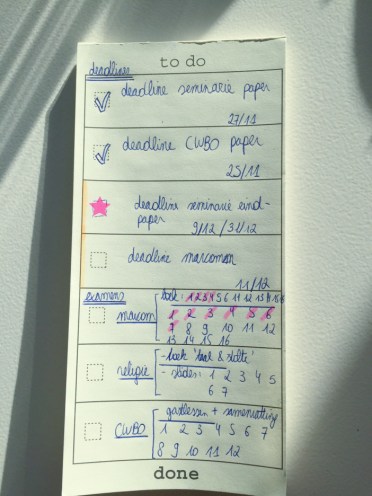 to do
deadlines
deadline seminarie paper
27/11
deadline CWBO paper
25/11
deadline seminarie eind-
paper
9/12 / 31/12
deadline marcomon
11/12
examens
boek: 1 2 3 4 5 6 11 12 13 14 15 16
marcom 1 2 3 4 5 6
7 8 9 10 11 12
13 14 15 16
- boek 'taal & stilte'
religie - slides: 1 2 3 4 5
6 7
gastlessen + samenvatting
CWBO 1 2 3 4 5 6 7
8 9 10 11 12
done